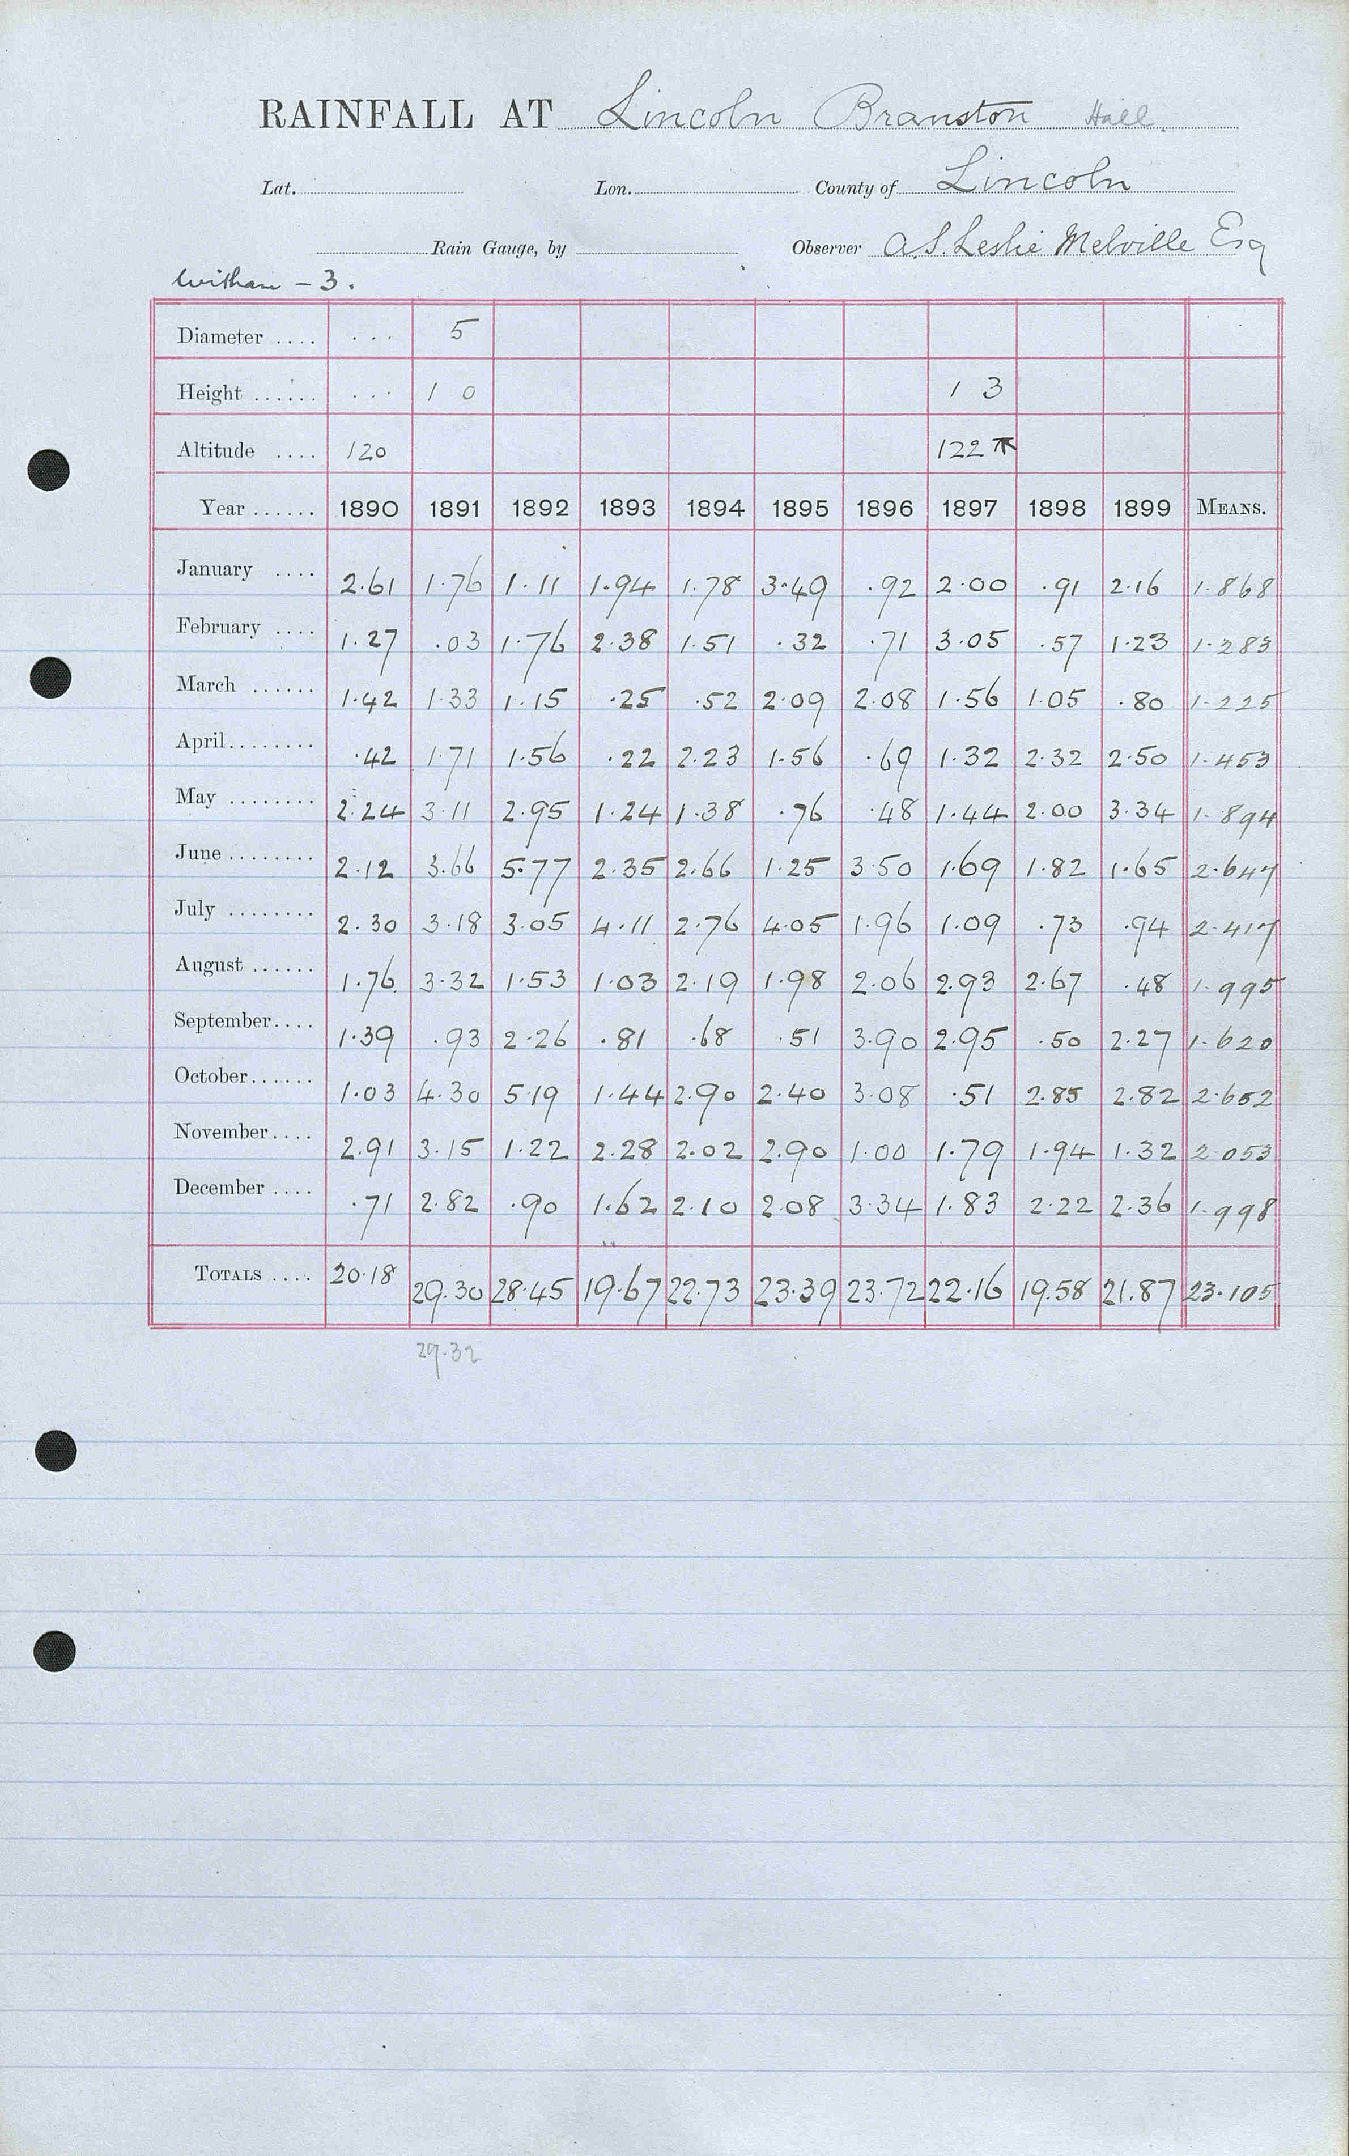 RAINFALL AT Lincoln Branston Hall.
Lat. Lon. County of Lincoln
Rain Gauge, by Observer A.S. Leslie Melville Esq
Witham - 3.
Diameter .... ... 5
Height ...... ... 1 0 1 3
Altitude .... 120 122 ↑
Year ...... 1890 1891 1892 1893 1894 1895 1896 1897 1898 1899 MEANS.
January .... 2.61 1.76 1.11 1.94 1.78 3.49 .92 2.00 .91 2.16 1.868
February .... 1.27 .03 1.76 2.38 1.51 .32 .71 3.05 .57 1.23 1.283
March ...... 1.42 1.33 1.15 .25 .52 2.09 2.08 1.56 1.05 .80 1.225
April........ .42 1.71 1.56 .22 2.23 1.56 .69 1.32 2.32 2.50 1.453
May ........ 2.24 3.11 2.95 1.24 1.38 .76 .48 1.44 2.00 3.34 1.894
June ........ 2.12 3.66 5.77 2.35 2.66 1.25 3.50 1.69 1.82 1.65 2.647
July ........ 2.30 3.18 3.05 4.11 2.76 4.05 1.96 1.09 .73 .94 2.417
August ...... 1.76 3.32 1.53 1.03 2.19 1.98 2.06 2.93 2.67 .48 1.995
September.... 1.39 .93 2.26 .81 .68 .51 3.90 2.95 .50 2.27 1.620
October...... 1.03 4.30 5.19 1.44 2.90 2.40 3.08 .51 2.85 2.82 2.652
November.... 2.91 3.15 1.22 2.28 2.02 2.90 1.00 1.79 1.94 1.32 2.053
December .... .71 2.82 .90 1.62 2.10 2.08 3.34 1.83 2.22 2.36 1.998
TOTALS .... 20.18 29.30 28.45 19.67 22.73 23.39 23.72 22.16 19.58 21.87 23.105
29.32